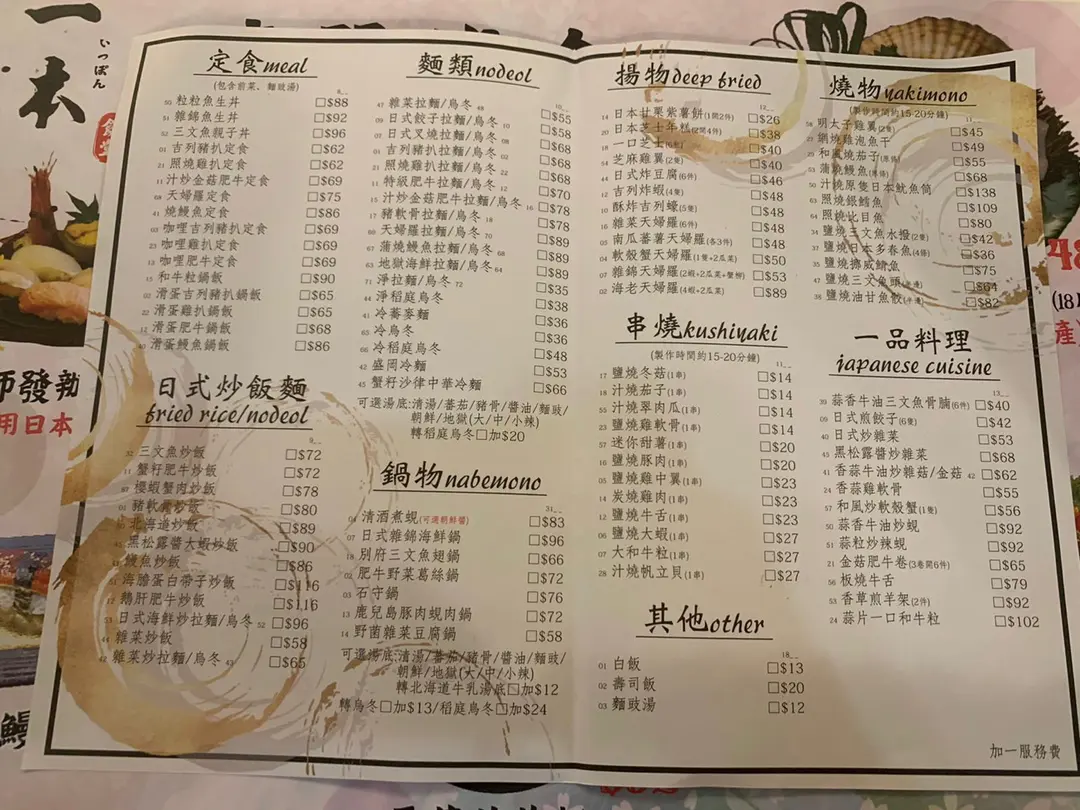 一本
いっぽん
定食meal
(包含前菜、麵豉湯)
50 粒粒魚生丼 □$88
51 雜錦魚生丼 □$92
52 三文魚親子丼 □$96
01 吉列豬扒定食 □$62
21 照燒雞扒定食 □$62
11 汁炒金菇肥牛定食 □$69
68 天婦羅定食 □$75
41 燒鰻魚定食 □$86
03 咖哩吉列豬扒定食 □$69
23 咖哩雞扒定食 □$69
13 咖哩肥牛定食 □$69
15 和牛粒鍋飯 □$90
02 滑蛋吉列豬扒鍋飯 □$65
22 滑蛋雞扒鍋飯 □$65
12 滑蛋肥牛鍋飯 □$68
滑蛋鰻魚鍋飯 □$86
日式炒飯麵
fried rice/nodeol
三文魚炒飯 □$72
蟹籽肥牛炒飯 □$72
櫻蝦蟹肉炒飯 □$78
豬軟骨炒飯 □$80
北海道炒飯 □$89
黑松露醬大蝦炒飯 □$90
鰻魚炒飯 □$86
海膽蛋白帶子炒飯 □$116
鵝肝肥牛炒飯 □$116
日式海鮮炒拉麵/烏冬 52 □$96
雜菜炒飯 □$58
42 雜菜炒拉麵/烏冬 43 □$65
麵類nodeol
47 雜菜拉麵/烏冬 48 □$55
09 日式餃子拉麵/烏冬 10 □$58
07 日式叉燒拉麵/烏冬 08 □$68
01 吉列豬扒拉麵/烏冬 02 □$68
21 照燒雞扒拉麵/烏冬 22 □$68
11 特級肥牛拉麵/烏冬 12 □$70
15 汁炒金菇肥牛拉麵/烏冬 16 □$78
17 豬軟骨拉麵/烏冬 18 □$78
69 天婦羅拉麵/烏冬 70 □$89
67 蒲燒鰻魚拉麵/烏冬 68 □$89
63 地獄海鮮拉麵/烏冬 64 □$89
71 淨拉麵/烏冬 72 □$35
44 淨稻庭烏冬 □$38
41 冷蕎麥麵 □$36
43 冷烏冬 □$36
46 冷稻庭烏冬 □$48
42 盛岡冷麵 □$53
45 蟹籽沙律中華冷麵 □$66
可選湯底:清湯/蕃茄/豬骨/醬油/麵豉/
朝鮮/地獄(大/中/小辣)
轉稻庭烏冬□加$20
鍋物nabemono
04 清酒煮蜆(可選朝鮮醬) □$83
07 日式雜錦海鮮鍋 □$96
18 別府三文魚翅鍋 □$66
02 肥牛野菜葛絲鍋 □$72
03 石守鍋 □$76
13 鹿兒島豚肉蜆肉鍋 □$72
14 野菌雜菜豆腐鍋 □$58
可選湯底:清湯/蕃茄/豬骨/醬油/麵豉/
朝鮮/地獄(大/中/小辣)
轉北海道牛乳湯底□加$12
轉烏冬□加$13/稻庭烏冬□加$24
揚物deep fried
14 日本甘栗紫薯餅(1開2件) □$26
20 日本芝士年糕(2開4件) □$38
18 一口芝士(6件) □$40
54 芝麻雞翼(2隻) □$40
44 日式炸豆腐(6件) □$46
12 吉列炸蝦(4隻) □$48
10 酥炸吉列蠔(5隻) □$48
16 雜菜天婦羅(6件) □$48
05 南瓜蕃薯天婦羅(各3件) □$48
04 軟殼蟹天婦羅(1隻+2瓜菜) □$50
07 雜錦天婦羅(2蝦+2瓜菜+蟹柳) □$53
02 海老天婦羅(4蝦+2瓜菜) □$89
串燒kushiyaki
(製作時間約15-20分鐘)
17 鹽燒冬菇(1串) □$14
18 汁燒茄子(1串) □$14
55 汁燒翠肉瓜(1串) □$14
23 鹽燒雞軟骨(1串) □$14
57 迷你甜薯(1串) □$20
16 鹽燒豚肉(1串) □$20
05 鹽燒雞中翼(1串) □$23
14 炭燒雞肉(1串) □$23
12 鹽燒牛舌(1串) □$23
06 鹽燒大蝦(1串) □$27
07 大和牛粒(1串) □$27
28 汁燒帆立貝(1串) □$27
其他other
01 白飯 □$13
02 壽司飯 □$20
03 麵豉湯 □$12
燒物yakimono
(製作時間約15-20分鐘)
58 明太子雞翼(2隻) □$45
網燒雞泡魚干 □$49
25 和風燒茄子(原條) □$55
53 蒲燒鰻魚(原條) □$68
50 汁燒原隻日本魷魚筒 □$138
63 照燒銀鱈魚 □$109
64 照燒比目魚 □$80
34 鹽燒三文魚水撥(2隻) □$42
37 鹽燒日本多春魚(4條) □$36
35 鹽燒挪威鯖魚 □$75
47 鹽燒三文魚頭(半邊) □$64
38 鹽燒油甘魚鮫(半邊) □$82
一品料理
japanese cuisine
39 蒜香牛油三文魚骨腩(6件) □$40
20 日式煎餃子(6隻) □$42
40 日式炒雜菜 □$53
45 黑松露醬炒雜菜 □$68
41 香蒜牛油炒雜菇/金菇 42 □$62
24 香蒜雞軟骨 □$55
57 和風炒軟殼蟹(1隻) □$56
50 蒜香牛油炒蜆 □$92
51 蒜粒炒辣蜆 □$92
21 金菇肥牛卷(3卷開6件) □$65
56 板燒牛舌 □$79
53 香草煎羊架(2件) □$92
24 蒜片一口和牛粒 □$102
加一服務費
師發勐
用日本
鰻